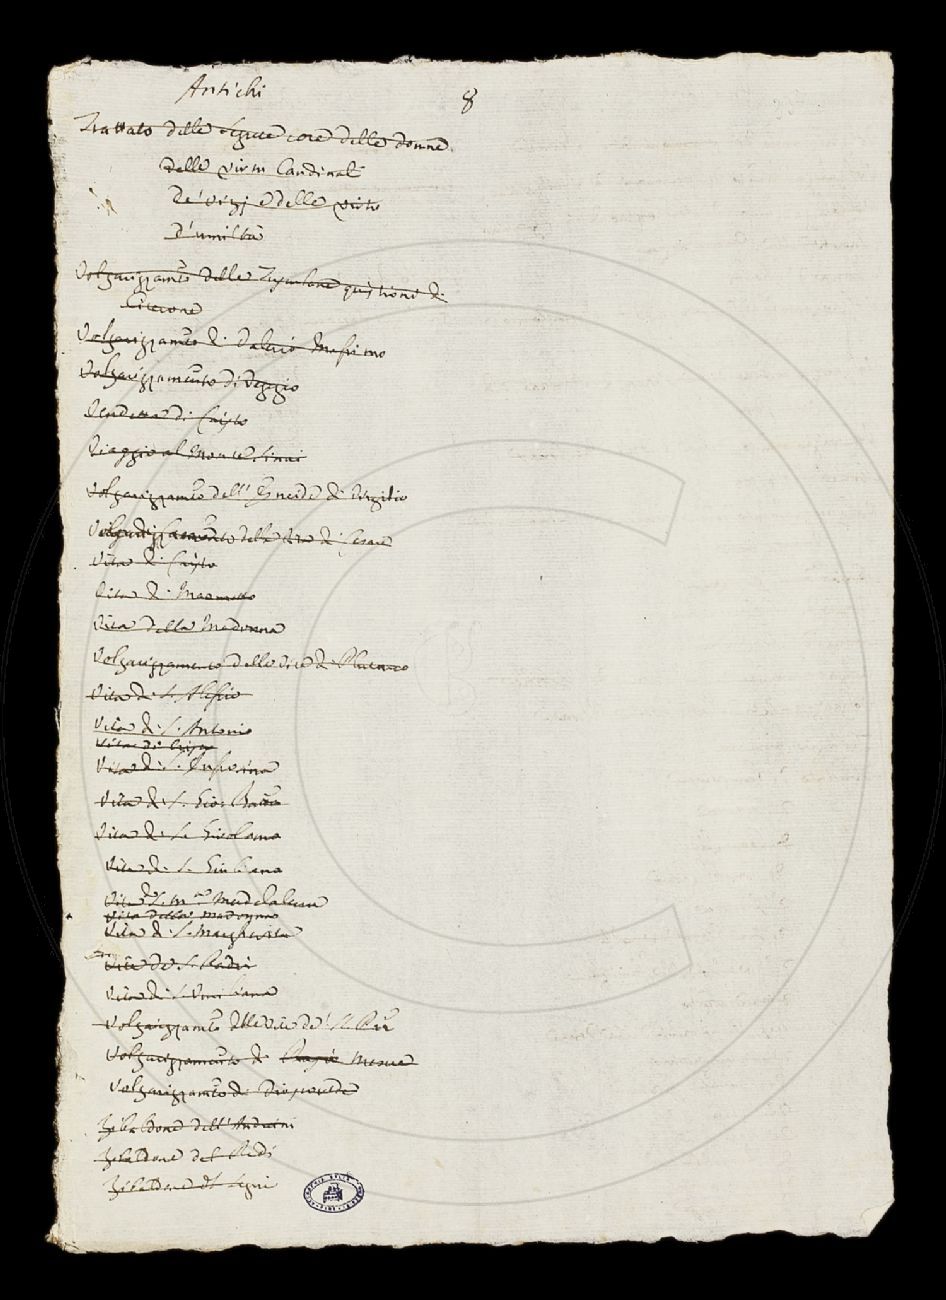 Antichi 8
Trattato delle segrete cose delle donne
delle virtù Cardinali
De' vizj e delle virtù
D'umiltà
Volgarizzamto delle Tusculane quistioni di
Cicerone
Volgarizzamto di Valerio Massimo
Volgarizzamento di Vegezio
Vendetta di Cristo
Viaggio al Monte Sinai
Volgarizzamto dell' Eneide di Virgilio
Volgarizzamento della vita di Cesare
Vita di Cristo
Vita di Maometto
Vita della Madonna
Volgarizzamento delle vite di Plutarco
Vita di S. Alessio
Vita di S. Antonio
Vita di Cristo
Vita di S. Eufrosina
Vita di S. Gio: Batta
Vita di S. Girolamo
Vita di S. Giuliana
Vita di S. Ma Maddalena
Vita della Madonna
Vita di S. Margherita
Vite de S. Padri
Vita di S. Umiliana
Volgarizzamto delle vite de' S. Padri
Volgarizzamento di Mesue
Volgarizzamto di Dioscoride
Zibaldone dell' Andreini
Zibaldone del Redi
Zibaldone di Segni